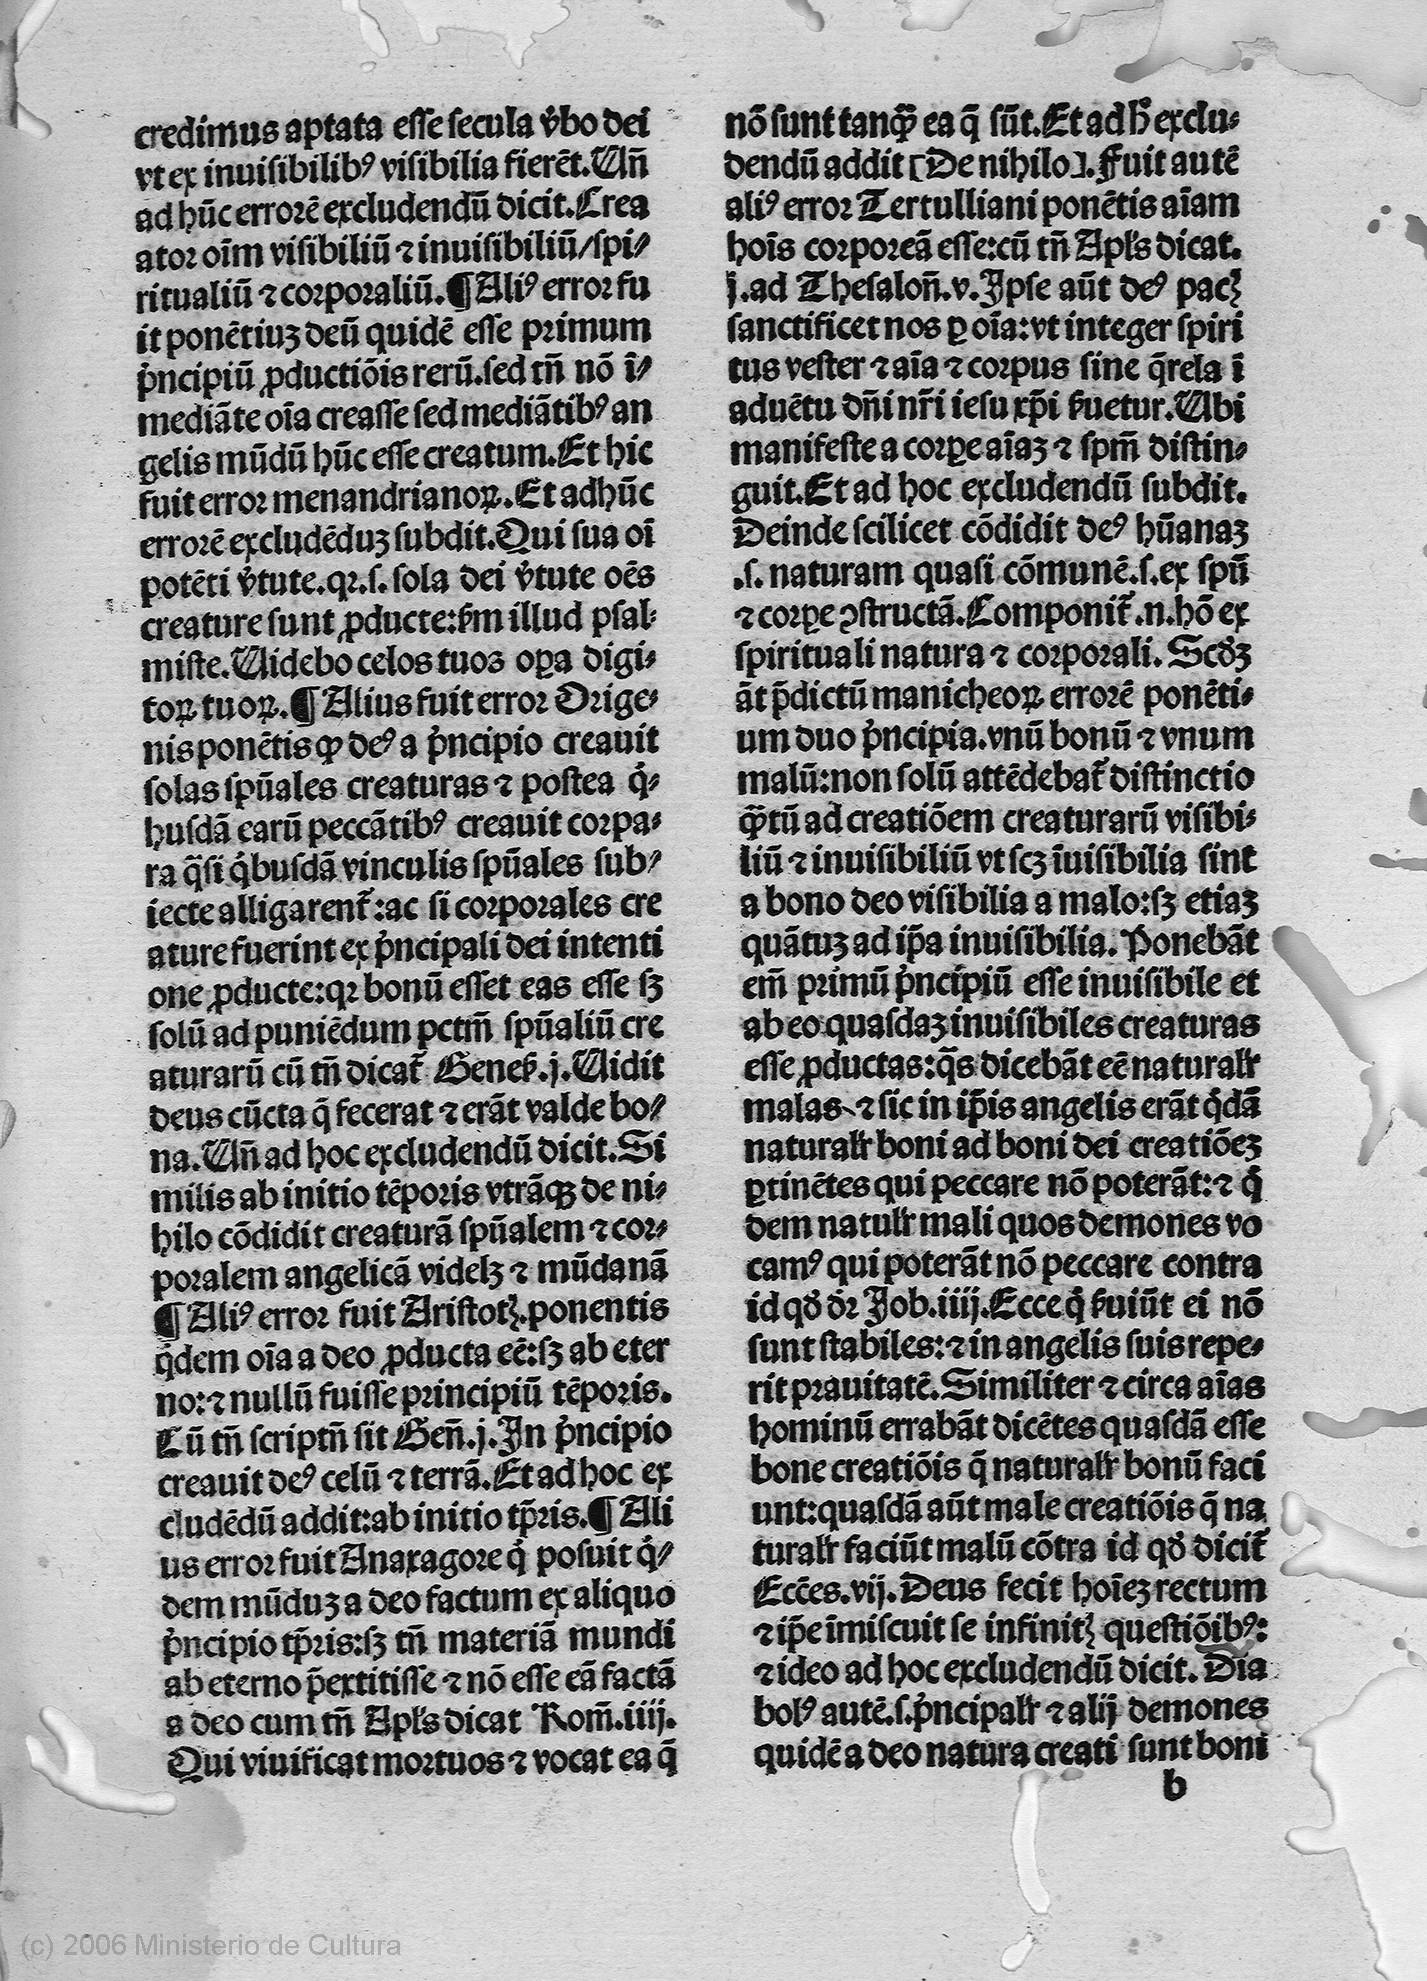 credimus aptata eſſe ſecula v̓bo dei
vt ex inuiſibilibꝰ viſibilia fierēt. Uñ
ad hūc errorē excludendū dicit. Crea
ator oīm viſibiliū ⁊ inuiſibiliū/ſpi⸗
ritualiū ⁊ corporaliū. ¶ Aliꝰ error fu
it ponētiuꝫ deū quidē eſſe primum
pͥncipiū ꝓductiōis rerū. ſed tñ nō ī⸗
mediāte oīa creaſſe ſed mediātibꝰ an
gelis mūdū hūc eſſe creatum. Et hic
fuit error menandrianoꝝ. Et adhūc
errorē excludēduꝫ ſubdit. Qui ſua oī
potēti v̓tute. qꝛ. ſ. ſola dei v̓tute oēs
creature ſunt ꝓducte: ẜm illud pſal⸗
miſte. Uidebo celos tuos oꝑa digi⸗
toꝝ tuoꝝ. ¶ Alius fuit error Orige⸗
nis ponētis ꝙ deꝰ a pͥncipio creauit
ſolas ſpūales creaturas ⁊ poſtea qͥ⸗
huſdā earū peccātibꝰ creauit corpa⸗
ra q̄ſi qͥbuſdā vinculis ſpūales ſub⸗
iecte alligarent᷑: ac ſi corporales cre
ature fuerint ex pͥncipali dei intenti
one ꝓducte: qꝛ bonū eſſet eas eſſe ſꝫ
ſolū ad puniēdum pctm̄ ſpūaliū cre
aturarū cū tñ dicat᷑ Geneẜ. j. Uidit
deus cūcta q̄ fecerat ⁊ erāt valde bo⸗
na. Uñ ad hoc excludendū dicit. Si
milis ab initio tēporis vtrāqꝫ de ni⸗
hilo cōdidit creaturā ſpūalem ⁊ cor⸗
poralem angelicā videlꝫ ⁊ mūdanā
¶ Aliꝰ error fuit Ariſtotꝭ. ponentis
qͥdem oīa a deo ꝓducta eē: ſꝫ ab eter
no: ⁊ nullū fuiſſe principiū tēporis.
Cū tñ ſcriptñ ſit Geñ. j. In pͥncipio
creauit deꝰ celū ⁊ terrā. Et ad hoc ex
cludēdū addit: ab initio tp̄ris. ¶ Ali
us error fuit Anaxagore qͥ poſuit qͥ⸗
dem mūduꝫ a deo factum ex aliquo
pͥncipio tp̄ris: ſꝫ tñ materiā mundi
ab eterno p̄extitiſſe ⁊ nō eſſe eā factā
a deo cum tñ Apl̓s dicat Rom̄. iiij.
Qui viuificat mortuos ⁊ vocat ea q̄
nō ſunt tanqȝ̄ ea q̄ ſūt. Et ad hͦ exclu⸗
dendū addit [De nihilo]. Fuit autē
aliꝰ error Tertulliani ponētis aīam
hoīs corporeā eſſe: cū tñ Apl̓s dicat.
j. ad Theſaloñ. v. Ipſe aūt deꝰ pacꝭ
ſanctificet nos ꝑ oīa: vt integer ſpiri
tus veſter ⁊ aīa ⁊ corpus ſine q̄rela ī
aduētu dñi nr̄i ieſu xp̄i ẜuetur. Ubi
manifeſte a corꝑe aīaꝫ ⁊ ſpm̄ diſtin⸗
guit. Et ad hoc excludendū ſubdit.
Deinde ſcilicet cōdidit deꝰ hūanaꝫ
.ſ. naturam quaſi cōmunē. ſ. ex ſpū
⁊ corꝑe ꝯſtructā. Componit᷑. n. hō ex
ſpirituali natura ⁊ corporali. Scd̓ꝫ
āt p̄dictū manicheoꝝ errorē ponēti⸗
um duo pͥncipia. vnū bonū ⁊ vnum
malū: non ſolū attēdebat᷑ diſtinctio
qȝ̄tū ad creatiōem creaturarū viſibi⸗
liū ⁊ inuiſibiliū vt ſcꝫ īuiſibilia ſint
a bono deo viſibilia a malo: ſꝫ etiaꝫ
quātuꝫ ad ip̄a inuiſibilia. Ponebāt
em̄ primū pͥncipiū eſſe inuiſibile et
ab eo quaſdaꝫ inuiſibiles creaturas
eſſe ꝓductas: q̄s dicebāt eē naturalr̓
malas ⁊ ſic in ip̄is angelis erāt qͥdā
naturalr̓ boni ad boni dei creatiōeꝫ
ꝑtinētes qui peccare nō poterāt: ⁊ qͥ
dem natulr̓ mali quos demones vo
camꝰ qui poterāt nō peccare contra
id qd̓ dr̓ Job. iiij. Ecce qͥ ẜuiūt ei nō
ſunt ſtabiles: ⁊ in angelis ſuis repe⸗
rit prauitatē. Similiter ⁊ circa aīas
hominū errabāt dicētes quaſdā eſſe
bone creatiōis q̄ naturalr̓ bonū faci
unt: quaſdā aūt male creatiōis q̄ na
turalr̓ faciūt malū cōtra id qd̓ dicit᷑
Ecc̄es. vij. Deus fecit hoīeꝫ rectum
⁊ ip̄e īmiſcuit ſe infinitꝭ queſtiōibꝰ:
⁊ ideo ad hoc excludendū dicit. Dia
bolꝰ autē. ſ. pͥncipalr̓ ⁊ alij demones
quidē a deo natura creati ſunt boni
b
(c) 2006 Ministerio de Cultura